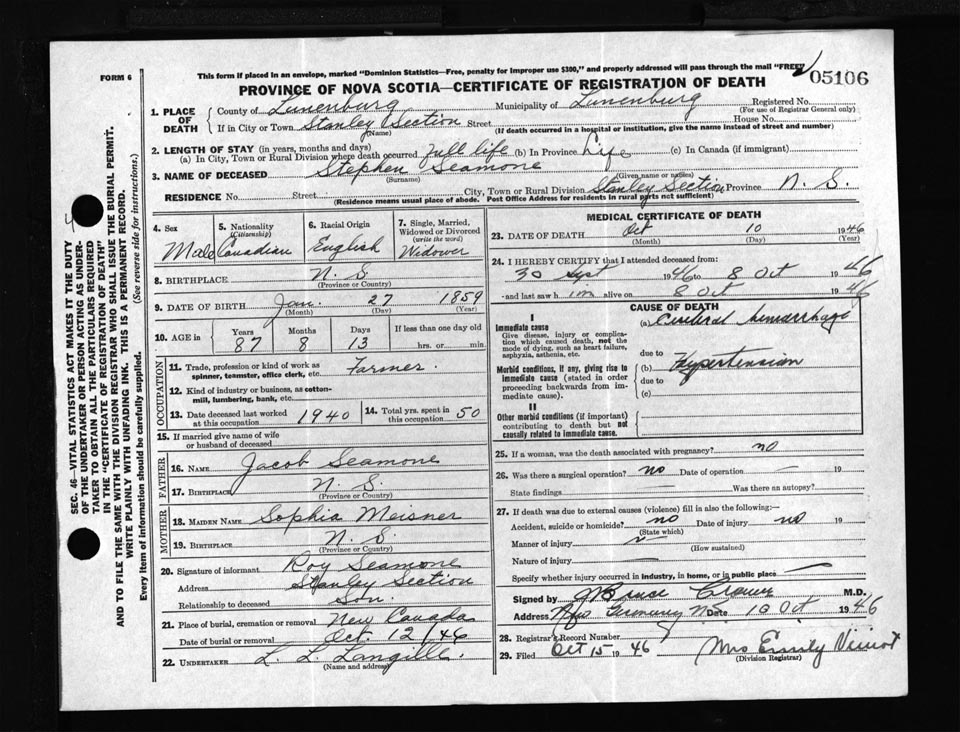 FORM 6
This form if placed in an envelope, marked "Dominion Statistics—Free, penalty for improper use $300," and properly addressed will pass through the mail "FREE"
05106
PROVINCE OF NOVA SCOTIA—CERTIFICATE OF REGISTRATION OF DEATH
1. PLACE OF DEATH
County of Lunenburg Municipality of Lunenburg Registered No.
(For use of Registrar General only)
If in City or Town Stanley Section Street House No.
(Name) (If death occurred in a hospital or institution, give the name instead of street and number)
2. LENGTH OF STAY (in years, months and days)
(a) In City, Town or Rural Division where death occurred full life (b) In Province Life (c) In Canada (if immigrant)
3. NAME OF DECEASED Stephen Seamone
(Surname) (Given name or names)
RESIDENCE No. Street City, Town or Rural Division Stanley Section Province N. S.
(Residence means usual place of abode. Post Office Address for residents in rural parts not sufficient)
4. Sex Male
5. Nationality (Citizenship) Canadian
6. Racial Origin English
7. Single, Married, Widowed or Divorced (write the word) Widower
8. BIRTHPLACE N. S.
(Province or Country)
9. DATE OF BIRTH Jan. 27 1859
(Month) (Day) (Year)
10. AGE in Years 87 Months 8 Days 13 If less than one day old hrs. or min.
OCCUPATION
11. Trade, profession or kind of work as spinner, teamster, office clerk, etc. Farmer.
12. Kind of industry or business, as cotton-mill, lumbering, bank, etc.
13. Date deceased last worked at this occupation 1940
14. Total yrs. spent in this occupation 50
15. If married give name of wife or husband of deceased
FATHER
16. NAME Jacob Seamone
17. BIRTHPLACE N. S.
(Province or Country)
MOTHER
18. MAIDEN NAME Sophia Meisner
19. BIRTHPLACE N. S.
(Province or Country)
20. Signature of informant Roy Seamone
Address Stanley Section
Relationship to deceased Son.
21. Place of burial, cremation or removal New Canada
Date of burial or removal Oct. 12/46
22. UNDERTAKER L. L. Langille.
(Name and address)
MEDICAL CERTIFICATE OF DEATH
23. DATE OF DEATH Oct 10 1946
(Month) (Day) (Year)
24. I HEREBY CERTIFY that I attended deceased from:
30 Sept 1946 to 8 Oct 1946
and last saw him alive on 8 Oct 1946
CAUSE OF DEATH
I
Immediate cause
Give disease, injury or complication which caused death, not the mode of dying, such as heart failure, asphyxia, asthenia, etc.
(a) Cerebral hemorrhage
due to
Morbid conditions, if any, giving rise to immediate cause (stated in order proceeding backwards from immediate cause).
(b) Hypertension
due to
(c)
II
Other morbid conditions (if important) contributing to death but not causally related to immediate cause.
25. If a woman, was the death associated with pregnancy? no
26. Was there a surgical operation? no Date of operation — 19
State findings Was there an autopsy?
27. If death was due to external causes (violence) fill in also the following:—
Accident, suicide or homicide? no Date of injury no 19
(State which)
Manner of injury
(How sustained)
Nature of injury
Specify whether injury occurred in industry, in home, or in public place
Signed by Bruce M.D.
Address N.S. Date 10 Oct 1946
28. Registrar's Record Number
29. Filed Oct 15 1946 Mrs Emily
(Division Registrar)
SEC. 46—VITAL STATISTICS ACT MAKES IT THE DUTY
OF THE UNDERTAKER OR PERSON ACTING AS UNDER-
TAKER TO OBTAIN ALL THE PARTICULARS REQUIRED
IN THE "CERTIFICATE OF REGISTRATION OF DEATH"
AND TO FILE THE SAME WITH THE DIVISION REGISTRAR WHO SHALL ISSUE THE BURIAL PERMIT.
WRITE PLAINLY WITH UNFADING INK. THIS IS A PERMANENT RECORD.
Every item of information should be carefully supplied. (See reverse side for instructions.)